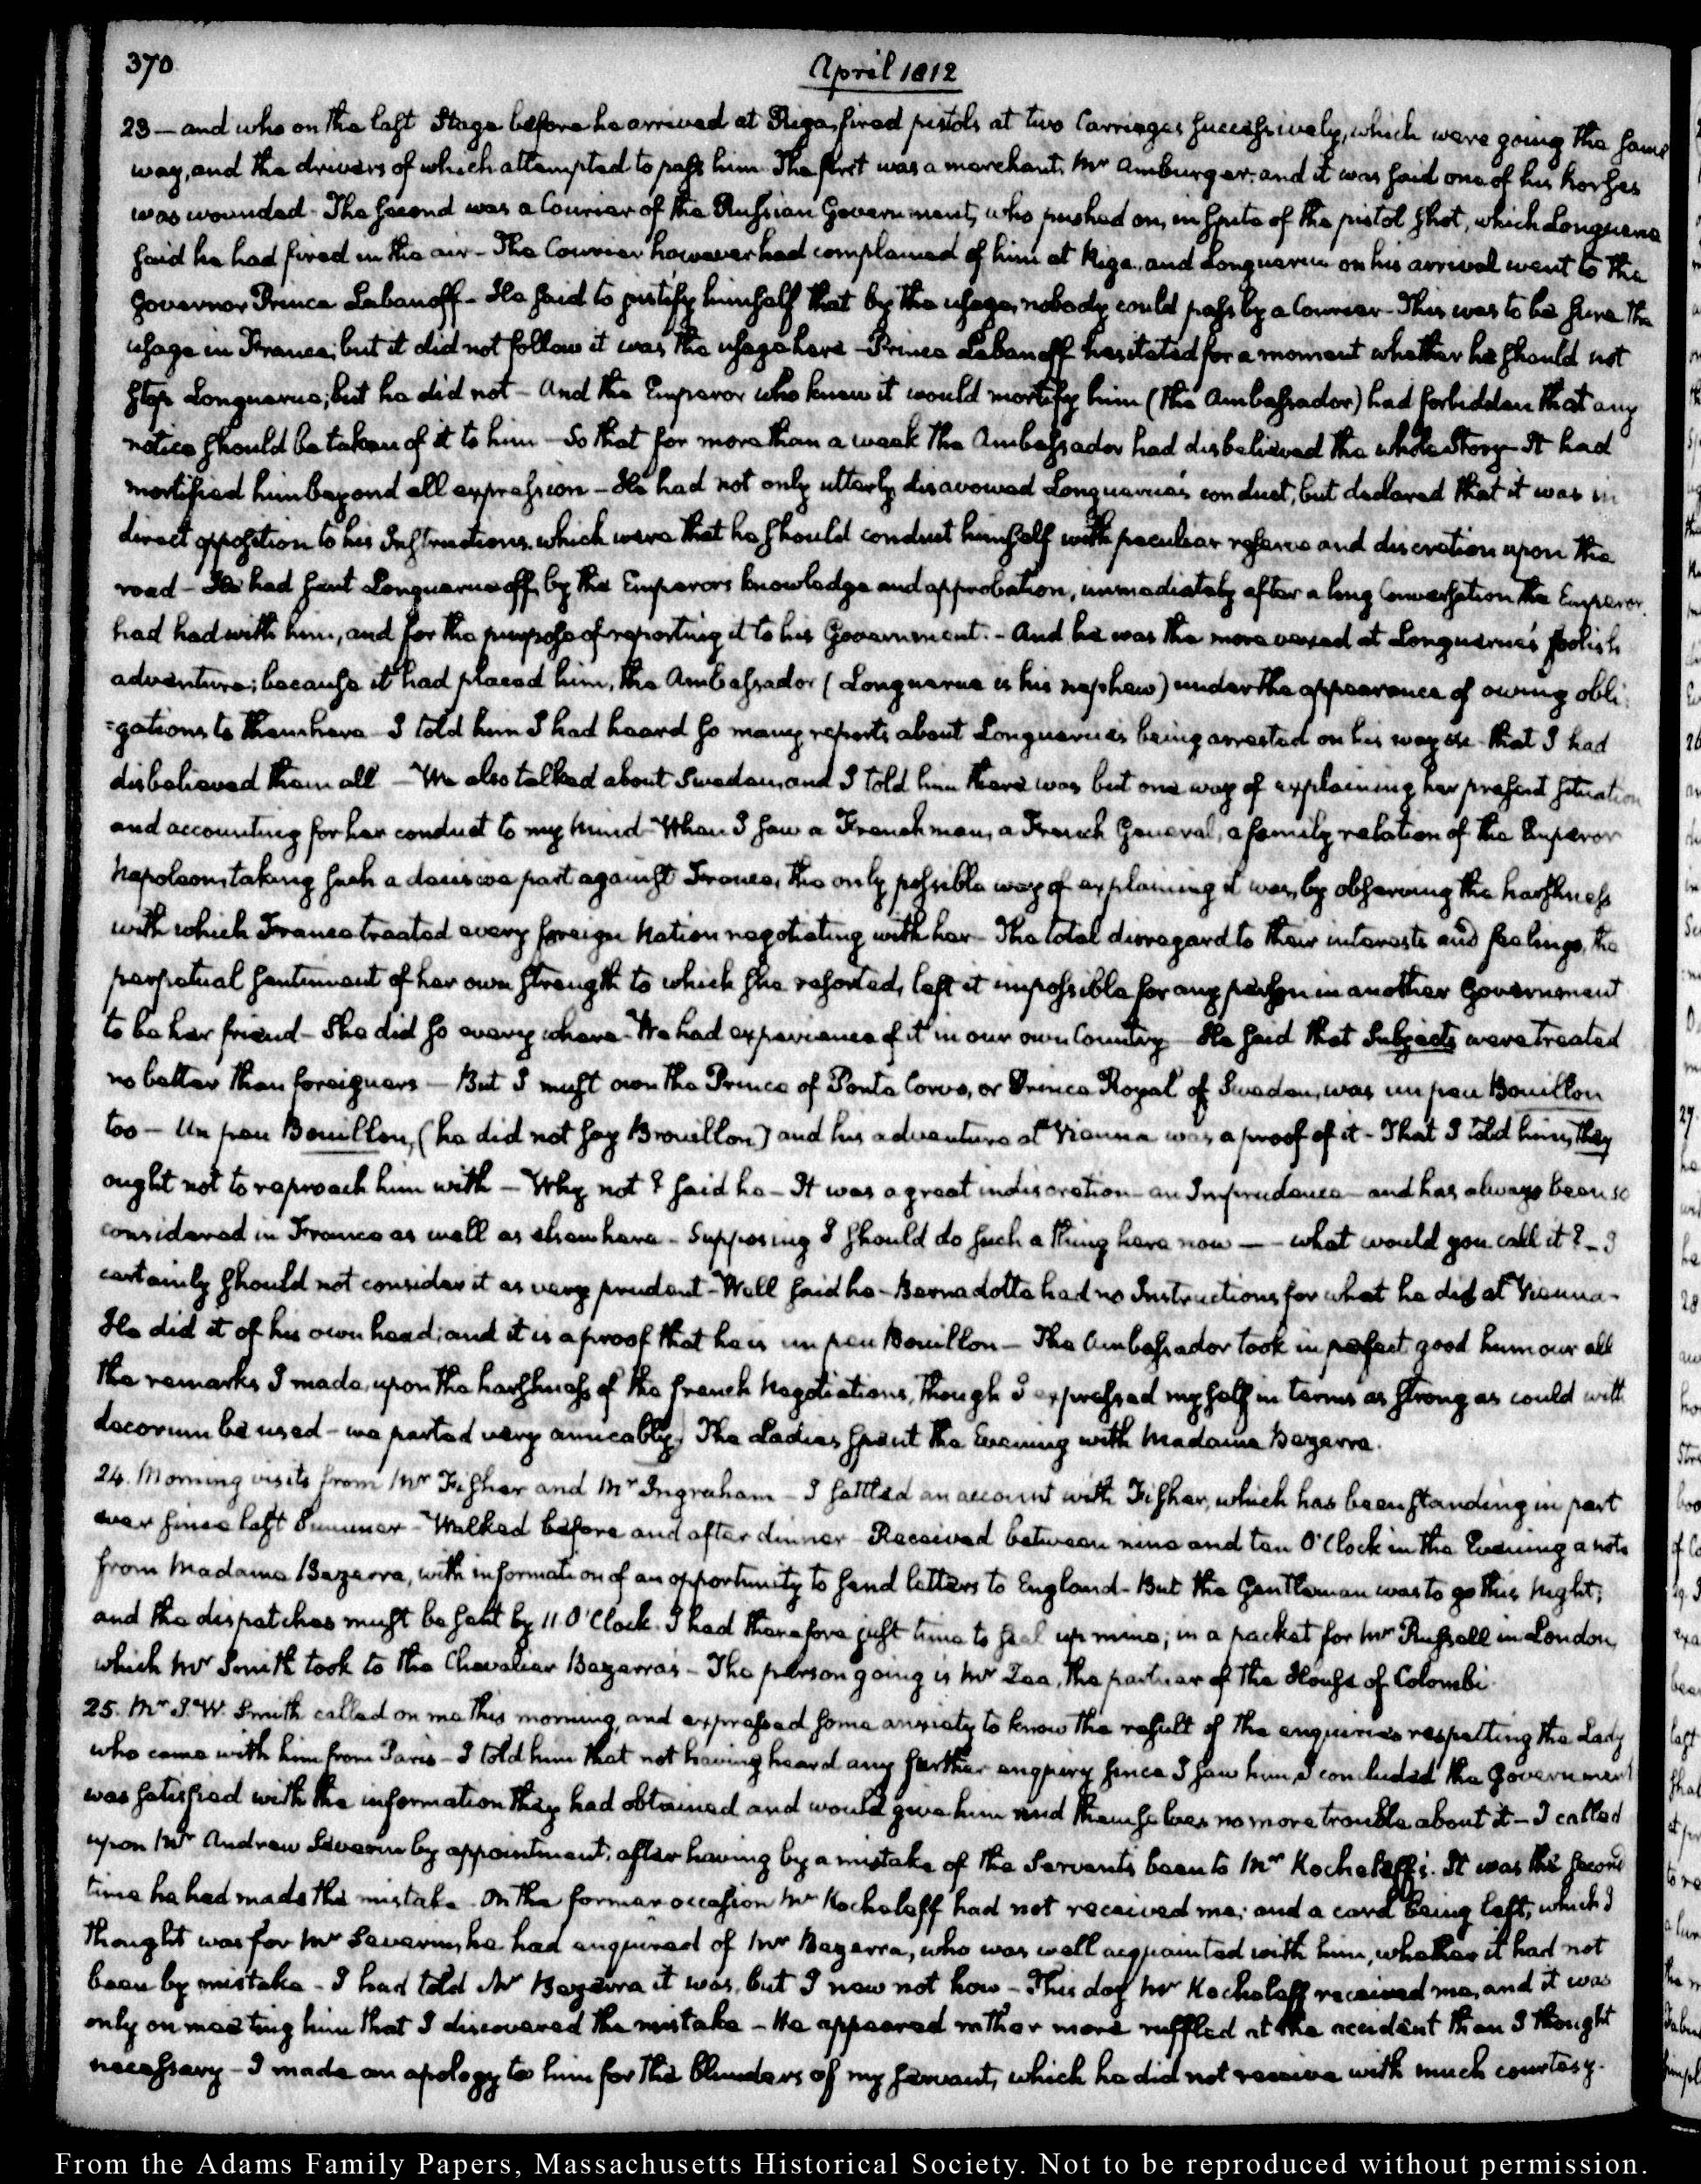 370
April 1812
23 — and who on the last Stage before he arrived at Riga, fired pistols at two Carriages successively, which were going the same
way, and the drivers of which attempted to pass him. The first was a merchant, Mr Amburger; and it was said one of his horses
was wounded - The second was a Courier of the Russian Government, who pushed on, in spite of the pistol shot, which Longuerue
said he had fired in the air - The Courier however had complained of him at Riga, and Longuerue on his arrival went to the
Governor Prince Labanoff - He said to justify himself that by the usage, nobody could pass by a Courier - This was to be sure the
usage in France; but it did not follow it was the usage here - Prince Labanoff hesitated for a moment whether he should not
stop Longuerue; but he did not - And the Emperor who knew it would mortify him (the Ambassador) had forbidden that any
notice should be taken of it to him - So that for more than a week the Ambassador had disbelieved the whole Story - It had
mortified him beyond all expression - He had not only utterly disavowed Longuerue's conduct, but declared that it was in
direct opposition to his Instructions, which were that he should conduct himself with peculiar reserve and discretion upon the
road - He had sent Longuerue off, by the Emperors knowledge and approbation, immediately after a long Conversation the Emperor
had had with him, and for the purpose of reporting it to his Government. - And he was the more vexed at Longuerue's foolish
adventure; because it had placed him, the Ambassador (Longuerue is his nephew) under the appearance of owing obli-
=gations to them here - I told him I had heard so many reports about Longuerue's being arrested on his way &c - that I had
disbelieved them all - We also talked about Sweden, and I told him there was but one way of explaining her present situation
and accounting for her conduct to my mind - When I saw a Frenchman, a French General, a family relation of the Emperor
Napoleon, taking such a decisive part against France, the only possible way of explaining it was, by observing the harshness
with which France treated every foreign Nation negotiating with her - The total disregard to their interests and feelings, the
perpetual sentiment of her own strength to which she resorted, left it impossible for any person in another Government
to be her friend - She did so every where - We had experience of it in our own Country - He said that Subjects were treated
no better than foreigners - But I must own the Prince of Ponte Corvo, or Prince Royal of Sweden, was un peu Bouillon
too - Un peu Bouillon, (he did not say Brouillon) and his adventure at Vienna was a proof of it - That I told him, they
ought not to reproach him with - Why not? said he - It was a great indiscretion - an Imprudence - and has always been so
considered in France as well as elsewhere - Supposing I should do such a thing here now - - what would you call it? - I
certainly should not consider it as very prudent - Well said he - Bernadotte had no Instructions for what he did at Vienna -
He did it of his own head; and it is a proof that he is un peu Bouillon - The Ambassador took in perfect good humour all
the remarks I made, upon the harshness of the french Negotiations, though I expressed myself in terms as strong as could with
decorum be used - we parted very amicably. The Ladies spent the Evening with Madame Bezerra.
24. Morning visits from Mr Fisher and Mr Ingraham - I settled an account with Fisher, which has been standing in part
ever since last Summer - Walked before and after dinner - Received between nine and ten O'Clock in the Evening a note
from Madame Bezerra, with information of an opportunity to send letters to England - But the Gentleman was to go this Night;
and the dispatches must be sent by 11 O'Clock. I had therefore just time to seal up mine; in a packet for Mr Russell in London,
which Mr Smith took to the Chevalier Bezerra's - The person going is Mr Zea, the partner of the House of Colombi.
25. Mr J. W. Smith called on me this morning, and expressed some anxiety to know the result of the enquiries respecting the Lady
who came with him from Paris - I told him that not having heard any further enquiry since I saw him, I concluded the Government
was satisfied with the information they had obtained and would give him and themselves no more trouble about it - I called
upon Mr Andrew Severin by appointment; after having by a mistake of the Servants been to Mr Kocheleff's. It was the second
time he had made the mistake. On the former occasion Mr Kocheleff had not received me; and a card being left, which I
thought was for Mr Severin, he had enquired of Mr Bezerra, who was well acquainted with him, whether it had not
been by mistake - I had told Mr Bezerra it was, but I new not how - This day Mr Kocheleff received me, and it was
only on meeting him that I discovered the mistake - He appeared rather more ruffled at the accident than I thought
necessary - I made an apology to him for the blunders of my servant, which he did not receive with much courtesy.
From the Adams Family Papers, Massachusetts Historical Society. Not to be reproduced without permission.